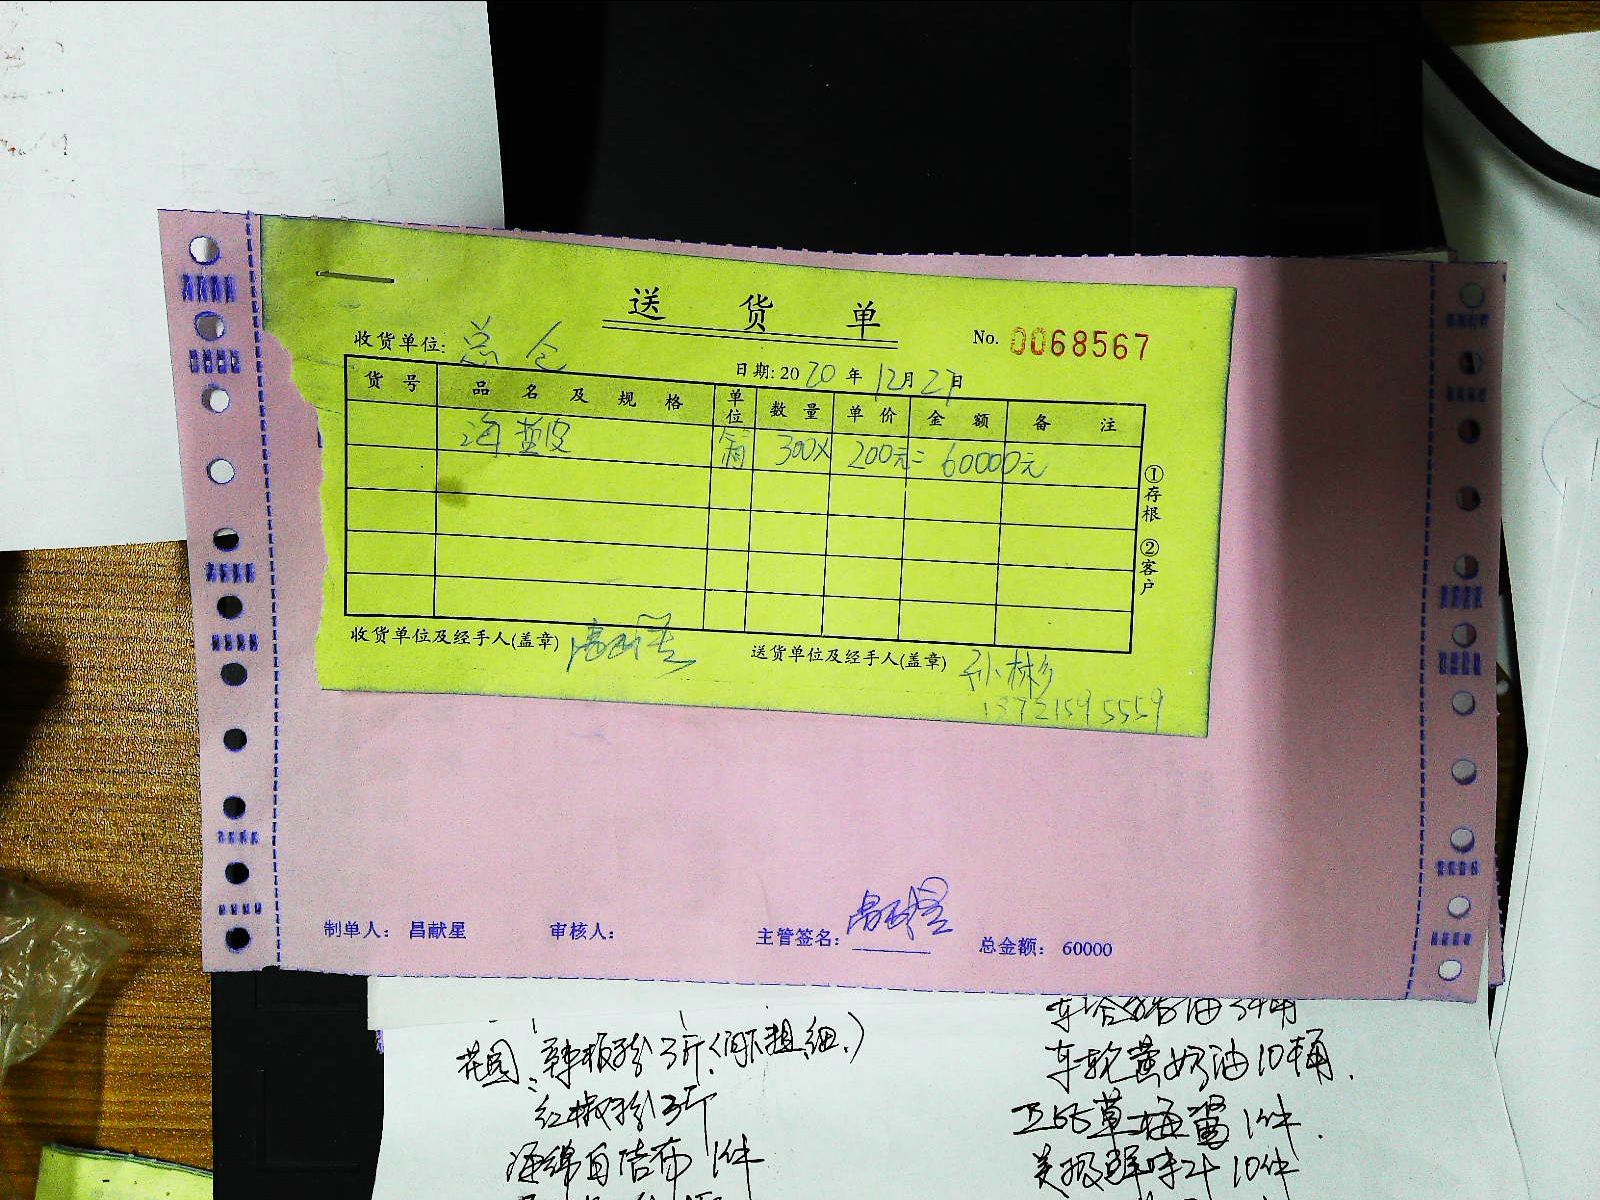 送 货 单
收货单位: 总仓
No. 0068567
日期: 2020 年 12月 27日
货 号 品 名 及 规 格 单位 数 量 单 价 金 额 备 注
海蜇皮 箱 300X 200元= 60000元
①存根 ②客户
收货单位及经手人(盖章)
送货单位及经手人(盖章) 孙彬
13721595559
制单人: 昌献星 审核人: 主管签名: 昌献星 总金额: 60000
花园: 辣椒粉3斤
红椒粉3斤
海绵百洁布 1件
车轮黄奶油10桶.
草莓酱 1件.
美极鲜味汁 10件